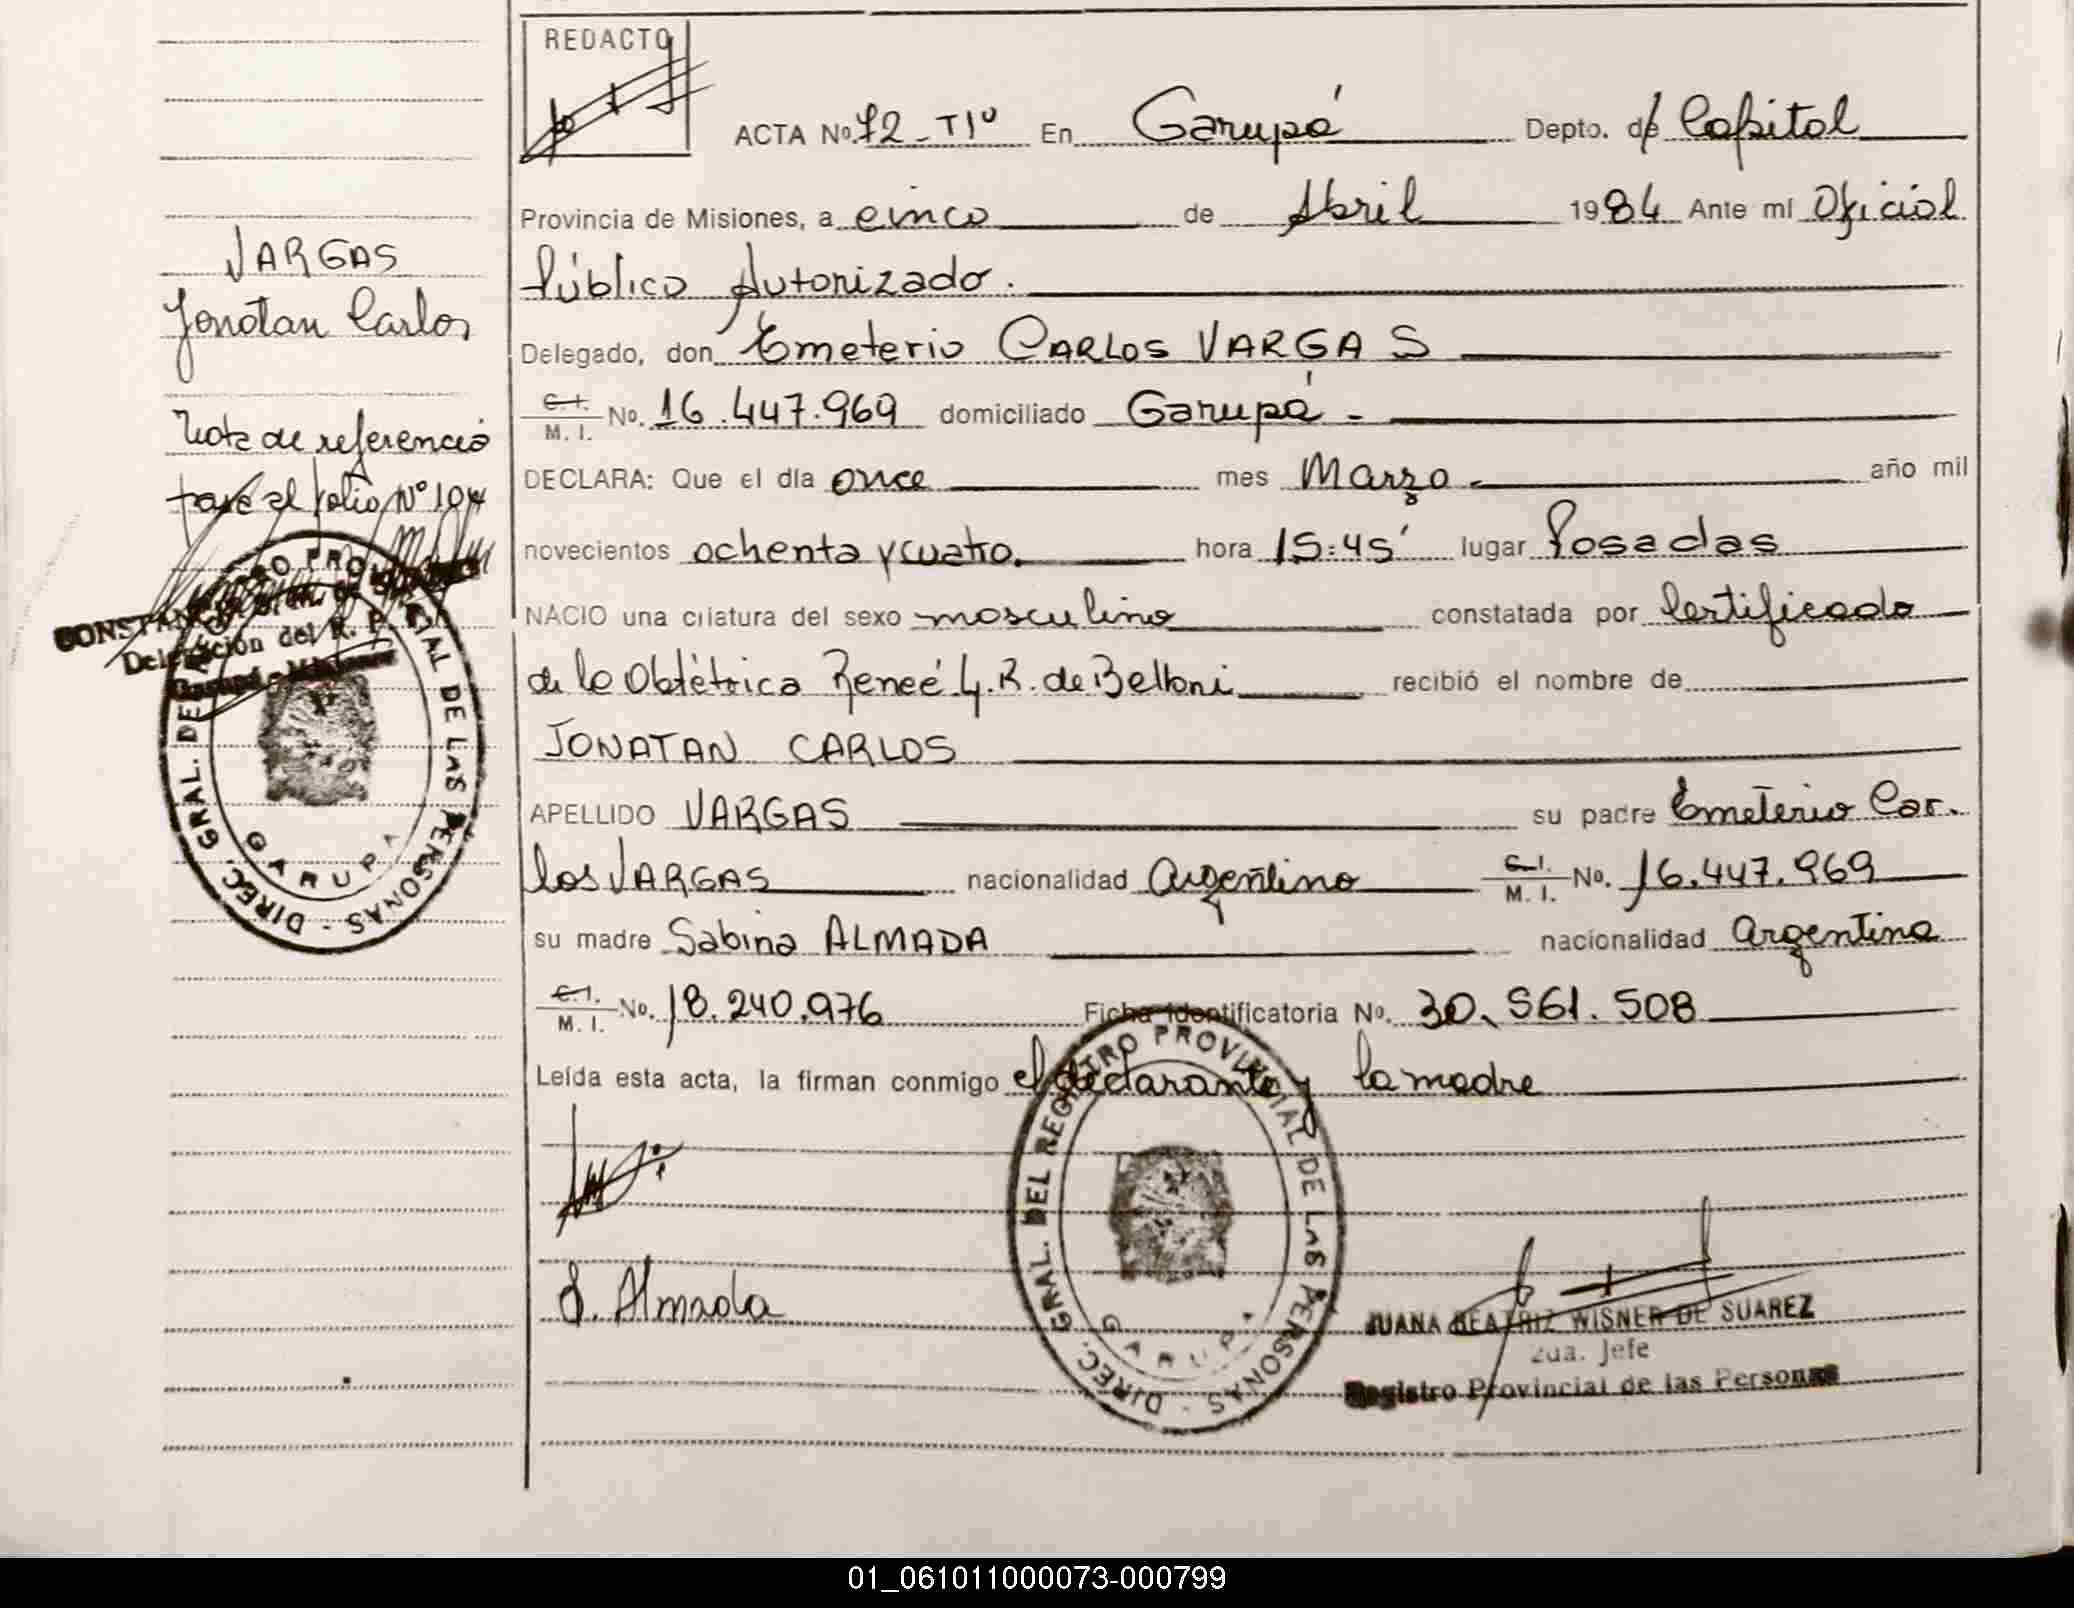 REDACTO
ACTA No. 72 - Tº 1º En Garupá Depto. de Capital
Provincia de Misiones, a cinco de Abril 1984 Ante mí Oficial
Público Autorizado.
Delegado, don Emeterio CARLOS VARGAS
C.I. M.I. No. 16.447.969 domiciliado Garupá -
DECLARA: Que el día once mes Marzo - año mil
novecientos ochenta y cuatro. hora 15:45' lugar Posadas
NACIO una criatura del sexo masculino constatada por Certificado
de la Obtétrica Reneé G. R. de Belloni recibió el nombre de
JONATAN CARLOS
APELLIDO VARGAS su padre Emeterio Car-
los VARGAS nacionalidad Argentino C.I. M.I. No. 16.447.969
su madre Sabina ALMADA nacionalidad Argentina
C.I. M.I. No. 18.240.976 Ficha Identificatoria No. 30.561.508
Leída esta acta, la firman conmigo el declarante y la madre
S. Almada
DIREC. GRAL. DEL REGISTRO PROVINCIAL DE LAS PERSONAS -
GARUPA
JUANA BEATRIZ WISNER DE SUAREZ
2da. Jefe
Registro Provincial de las Personas
VARGAS
Jonatan Carlos
Nota de referencia
pase al folio Nº 104
Delegación del R. P.
DIREC. GRAL. DEL REGISTRO PROVINCIAL DE LAS PERSONAS -
GARUPA
01_061011000073-000799